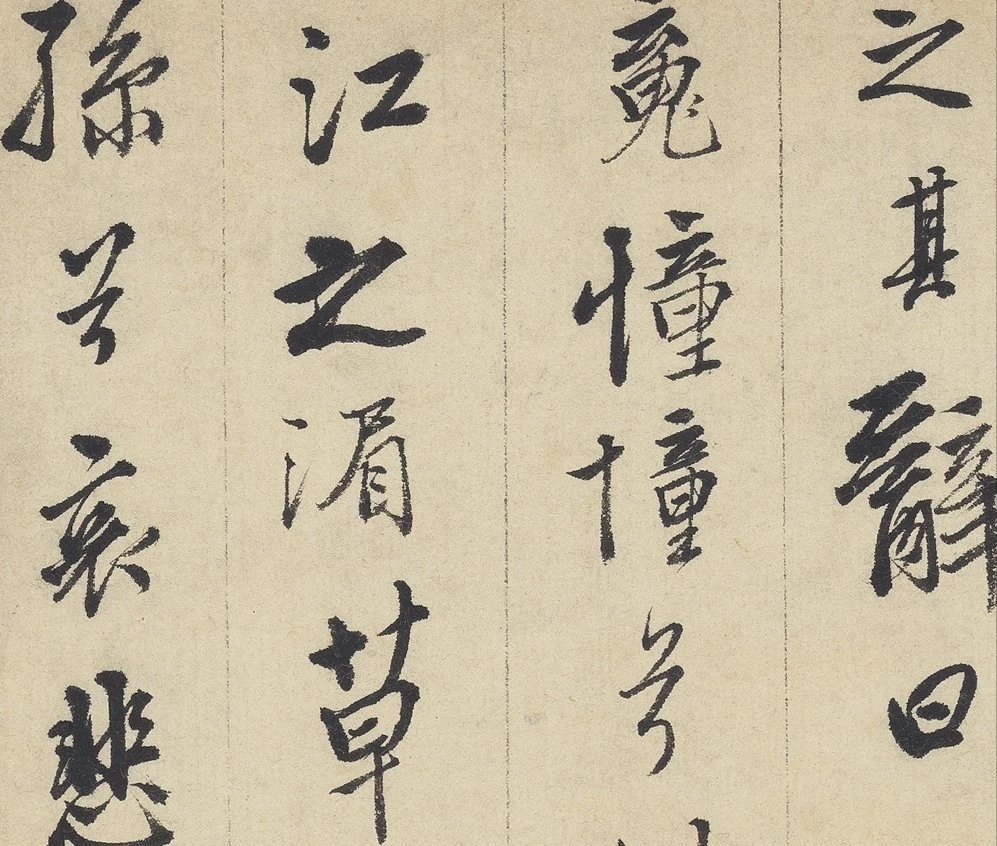 之其辭曰
魂憧憧兮
江之湄草
孫兮哀悲